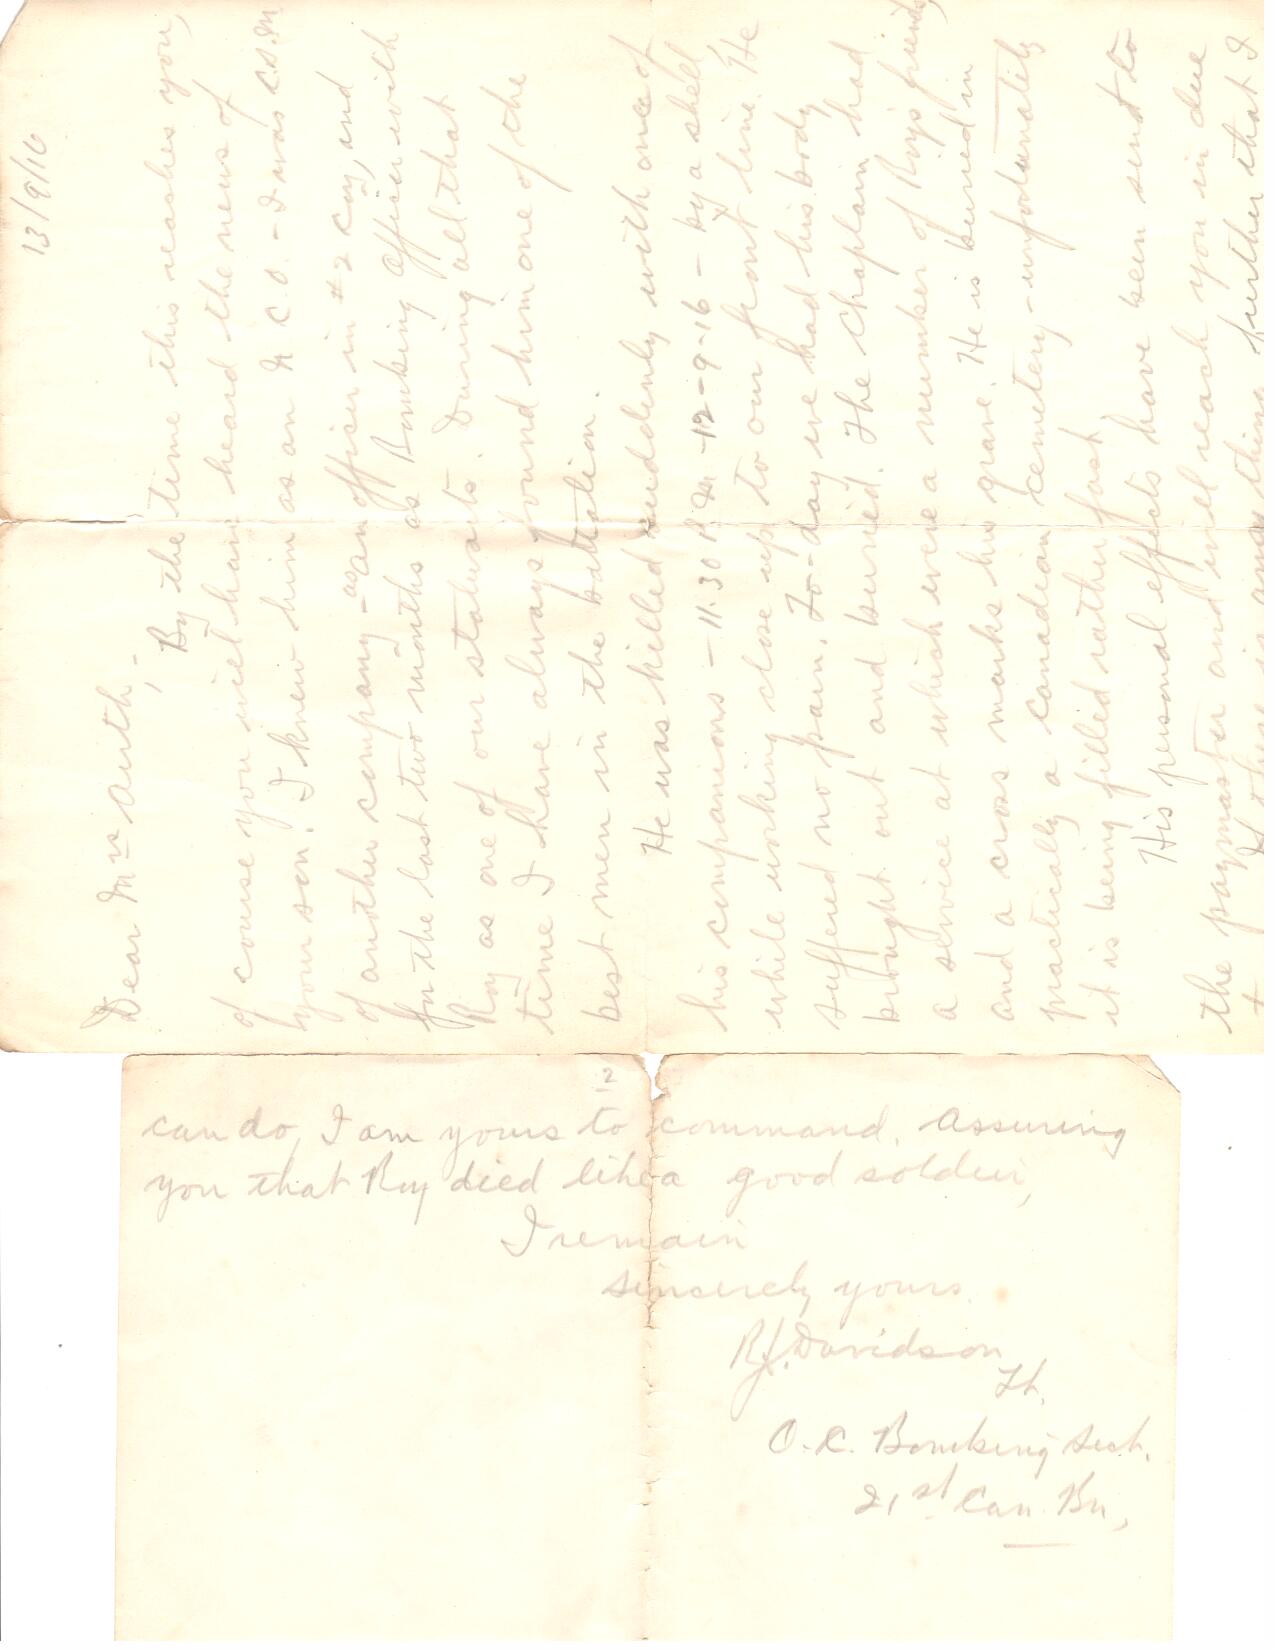 13/9/16
Dear Mrs Auth,-
By the time this reaches you,
of course you will have heard the news of
your son. I knew him as an N.C.O. - I was C.S.M
of another company - as an officer in #2 coy, and
for the last two months as Bombing Officer with
Roy as one of our stalwarts. During all that
time I have always found him one of the
best men in the battalion.
He was killed suddenly with one of
his companions - 11.30 P.M - 12-9-16 - by a shell
while working close up to our front line. He
suffered no pain. To-day we had his body
brought out and buried. The Chaplain had
a service at which were a number of Roy's friends,
and a cross marks his grave. He is buried in
practically a Canadian cemetery - unfortunately
it is being filled rather fast.
His personal effects have been sent to
the paymaster and will reach you in due
If there is any thing further that I
2
can do, I am yours to command. Assuring
you that Roy died like a good soldier,
I remain
Sincerely yours.
R.J. Davidson
Lt.
O.C. Bombing Sect.
21st Can. Bn,